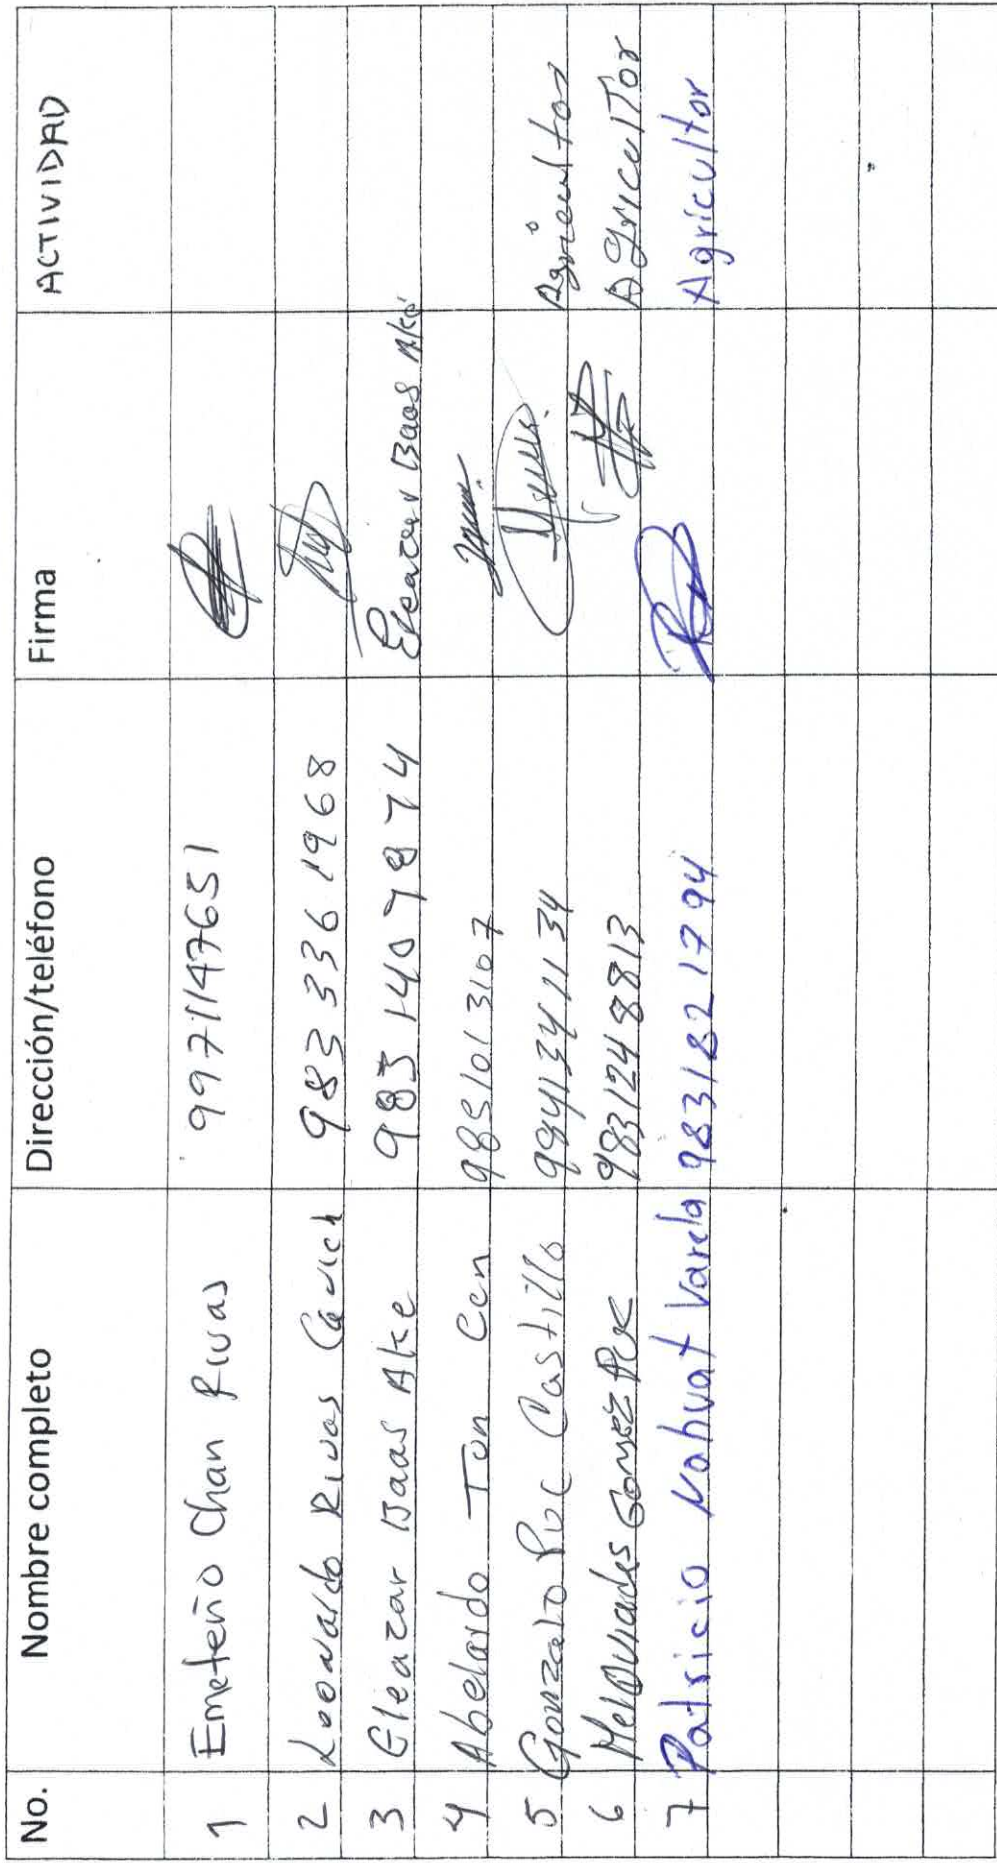 No. Nombre completo Dirección/teléfono Firma ACTIVIDAD
1 Emeteño Chan Rivas 9971147651
2 Leonardo Rivas Cauich 983 336 1968
3 Eleazar Baas Ake 983 140 7874 Eleazar Baas Aké
4 Abelardo Tun Cen 9851013107
5 Gonzalo Puc Castillo 9841341134 Agricultor
6 Melquiades Gomez Puk 9831248813 AgriculTor
7 Patricio Nahuat Varela 983182 1794 Agricultor